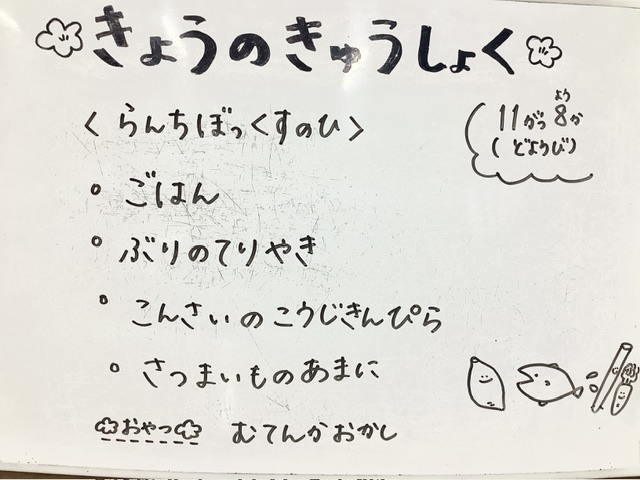 きょうのきゅうしょく
11がつ8か
よう
(どようび)
＜らんちぼっくすのひ＞
ごはん
ぶりのてりやき
こんさいのこうじきんぴら
さつまいものあまに
おやつ むてんかおかし